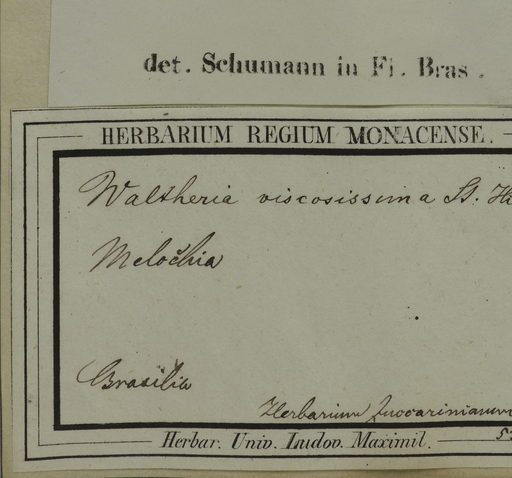 det. Schumann in Fl. Bras.
HERBARIUM REGIUM MONACENSE.
Waltheria viscosissima St. Hi
Melochia
Brasilia
Herbarium Zuccarinianum
Herbar. Univ. Ludov. Maximil.